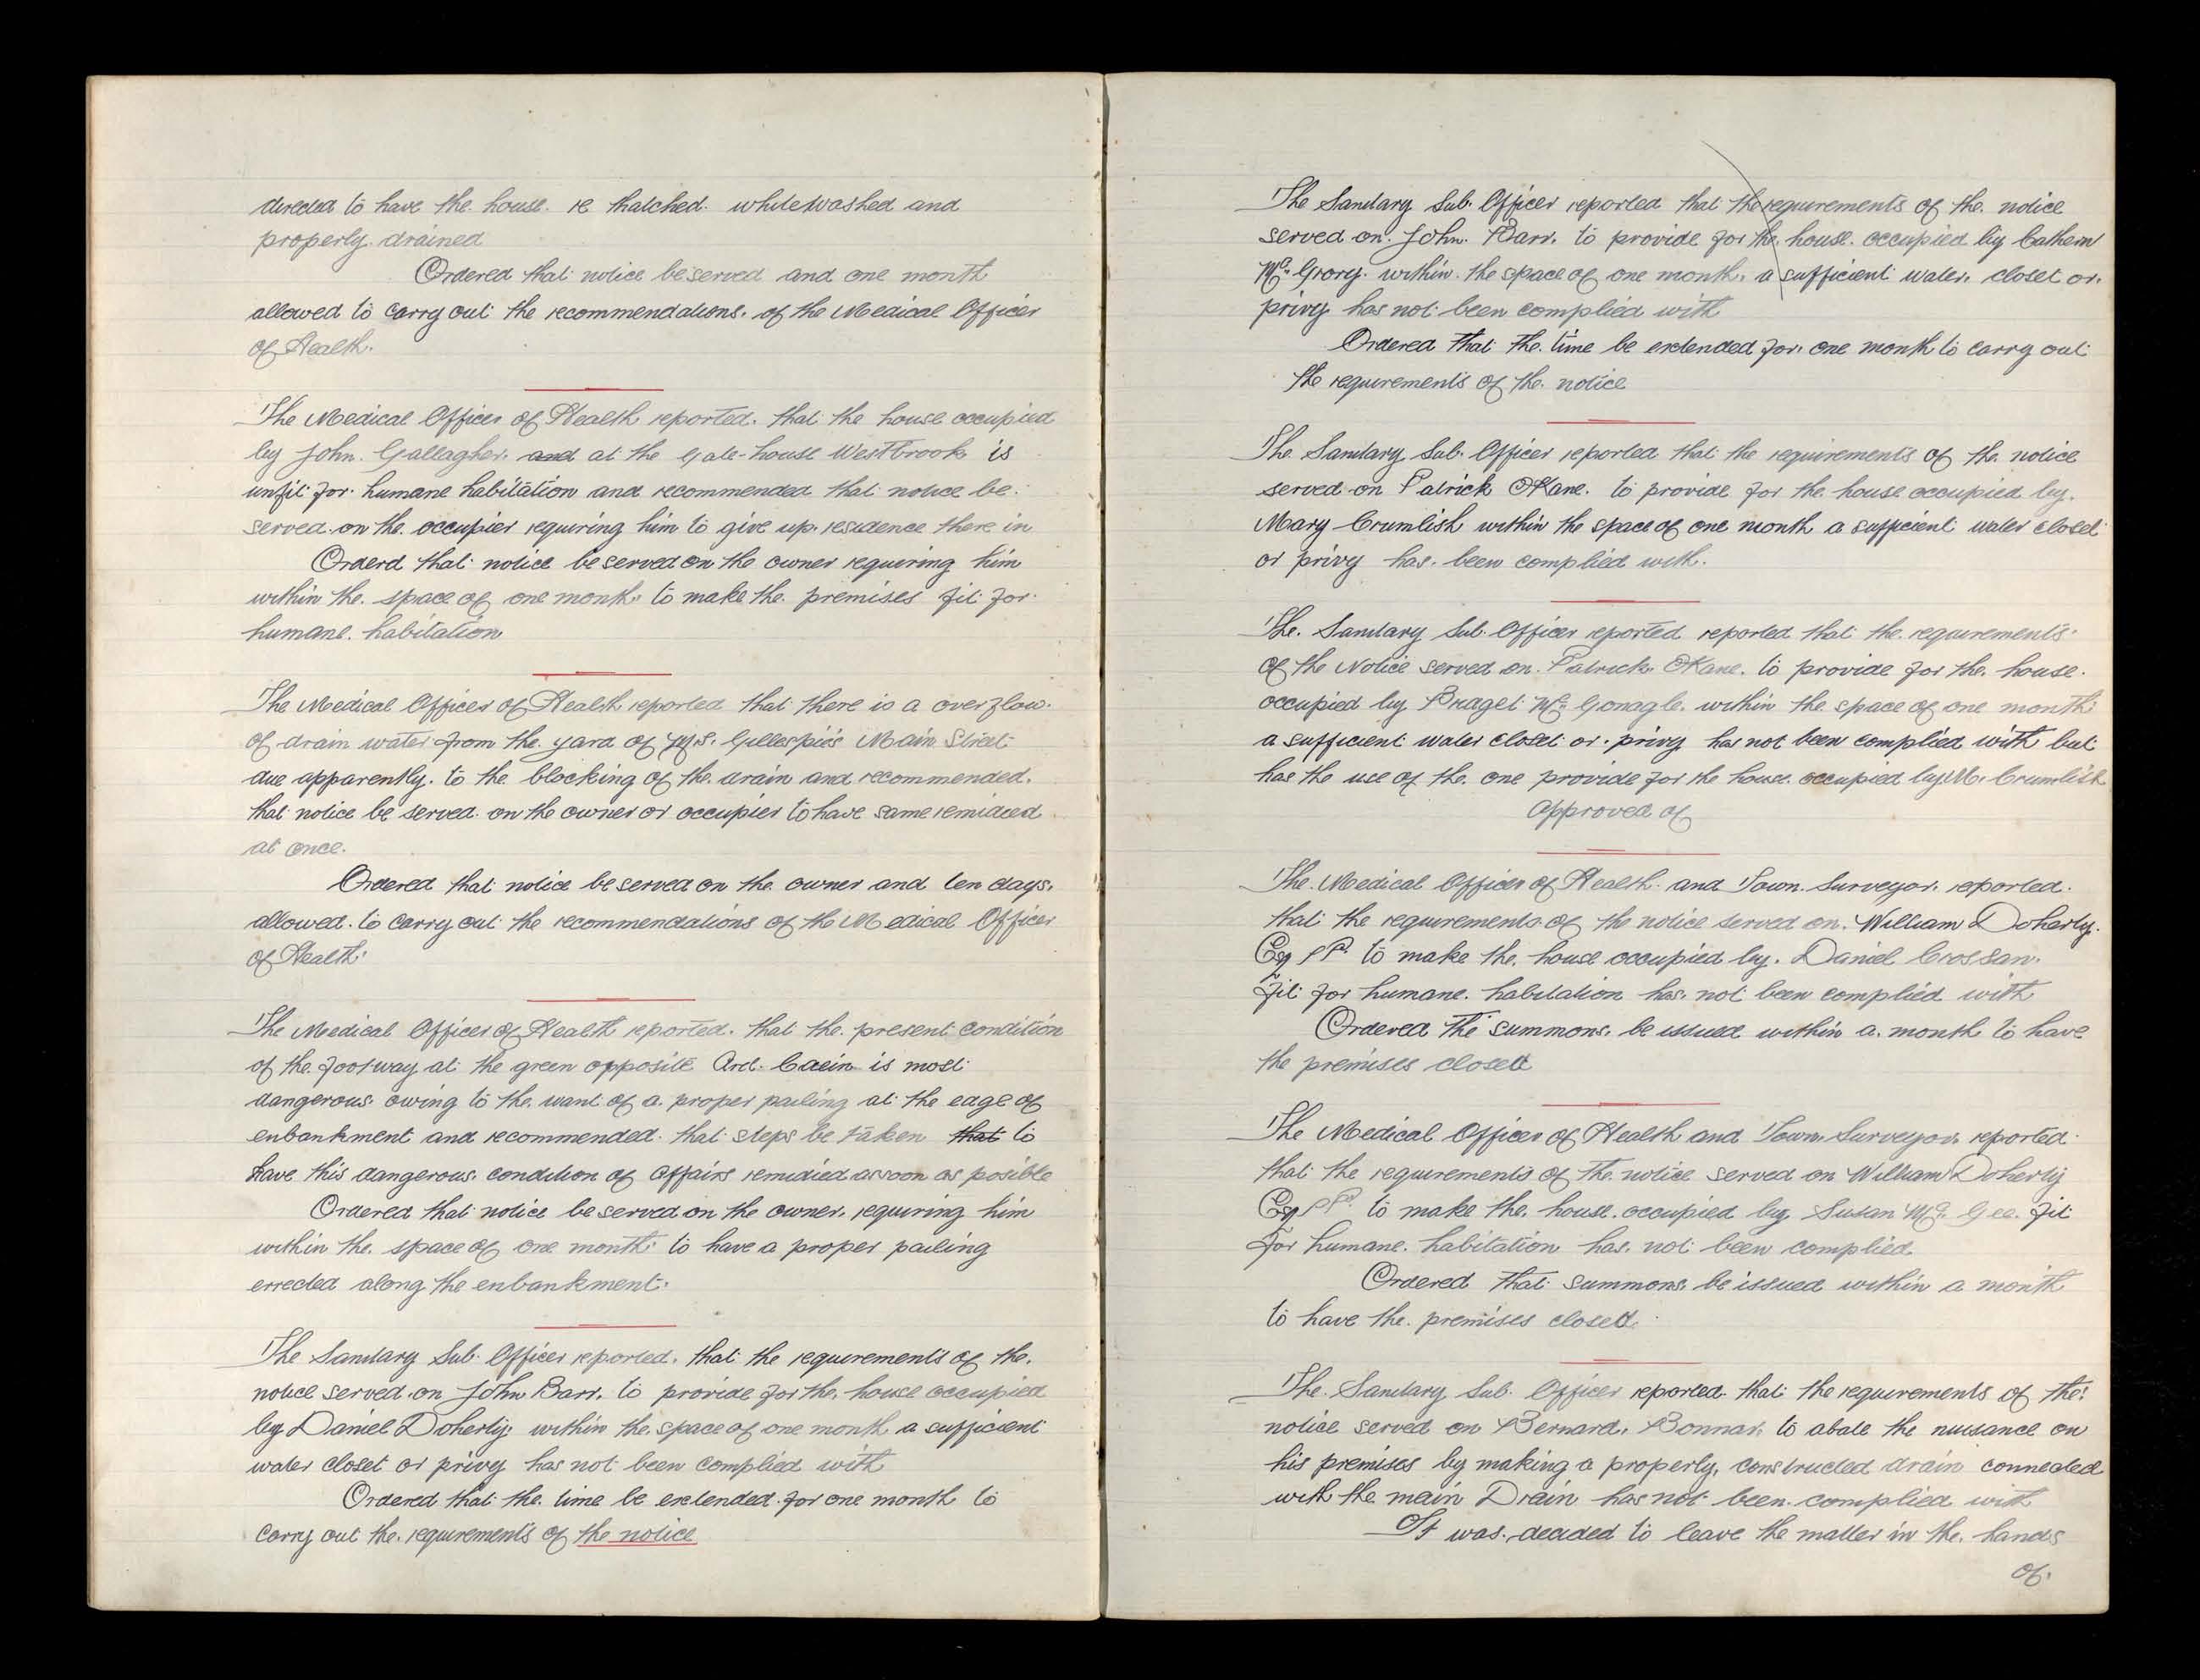 directed to have the house. re thatched. whitewashed and
properly. drained
Ordered that notice be served and one month
allowed to carry out the recommendations. of the Medical Officer
of Health.
The Medical Officer of Health reported. that the house occupied
by John. Gallagher. and at the Gate-house Westbrook is
unfit for humane habitation and recommended that notice be.
served on the occupier requiring him to give up residence there in
Orderd that notice be served on the owner requiring him
within the space of one month to make the premises fit for
humane. habitation
The Medical Officer of Health reported that there is a overflow
of drain water from the yard of Mrs. Gillespie's Main Street
due apparently. to the blocking of the drain and recommended.
that notice be served on the owner or occupier to have same remidied
at once.
Ordered that notice be served on the owner and ten days.
allowed. to carry out the recommendations of the Medical Officer
of Health.
The Medical Officer of Health reported. that the present condition
of the footway at the green opposite Ard. Caein is most
dangerous. owing to the want of a. proper pailing at the eage of
enbankment and recommended. that steps be taken that to
have this dangerous. condition of affairs remidied as soon as posible
Ordered that notice be served on the owner. requiring him
within the space of one month to have a proper pailing
errected along the enbankment.
The Sanitary Sub. Officer reported. that the requirements of the.
notice served on John Barr. to provide for the. house occupied
by Daniel Doherty. within the space of one month a sufficient
water closet or privy has not been complied with
Ordered that the time be extended for one month to
carry out the requirements of the notice
The Sanitary Sub. Officer reported that the requirements of the notice
served on. John. Barr. to provide for the house. occupied by Cathern
Mc. Grory. within the space of one month. a sufficient water. closet or.
privy has not been complied with
Ordered that the time be extended for one month to carry out
the requirements of the notice
The Sanitary Sub. Officer reported that the requirements of the notice
served on Patrick OKane. to provide for the house occupied by.
Mary Crumlish within the space of one month a sufficient water closet
or privy has. been complied with.
The. Sanitary Sub. Officer reported reported that the requirements
of the Notice served on Patrick OKane. to provide for the. house.
occupied by Briaget Mc. Gonagle. within the space of one month
a sufficient water closet or. privy has not been complied with but
has the use of the one provide for the house occupied by M. Crumlish
Approved of
The Medical Officer of Health and Town. Surveyor. reported.
that the requirements of the notice served on. William Doherty.
Esq J P. to make the. house occupied by. Daniel Crossan.
fit for humane. habitation has. not been complied with
Ordered the summons. be issued within a. month to have
the premises closed
The Medical Officer of Health and Town Surveyor reported
that the requirements of the notice served on William Doherty
Esq J P. to make the. house. occupied by Susan Mc. Gee. fit
for humane. habitation has. not been complied.
Ordered that summons. be issued within a month
to have the. premises closed.
The. Sanitary Sub. Officer reported. that the requirements of the.
notice served on Bernard. Bonnar. to abate the nuisance on
his premises by making a properly, constructed drain connected
with the main Drain has not been complied with
It was. decided to leave the matter in the. hands
of.